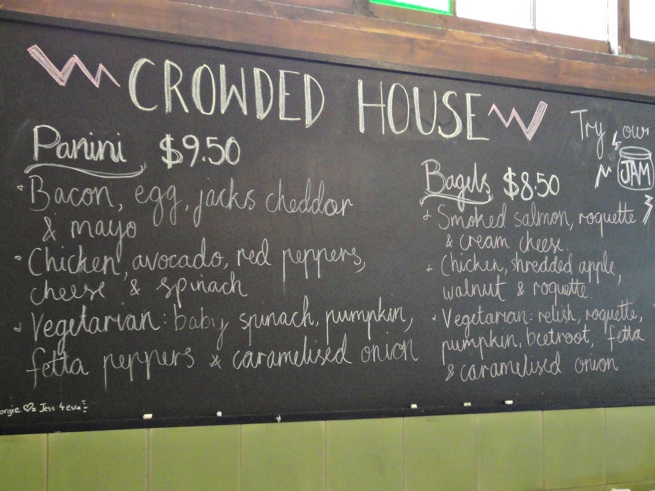 CROWDED HOUSE
Panini $9.50
Bacon, egg, jacks cheddar
& mayo
Chicken, avocado, red peppers,
cheese & spinach
Vegetarian: baby spinach, pumpkin,
fetta peppers & caramelised onion
Try our
JAM
Bagels $8.50
Smoked salmon, roquette
& cream cheese.
Chicken, shredded apple,
walnut & roquette
Vegetarian: relish, roquette,
pumpkin, beetroot, fetta
& caramelised onion
orgie ♡z Jess 4eva